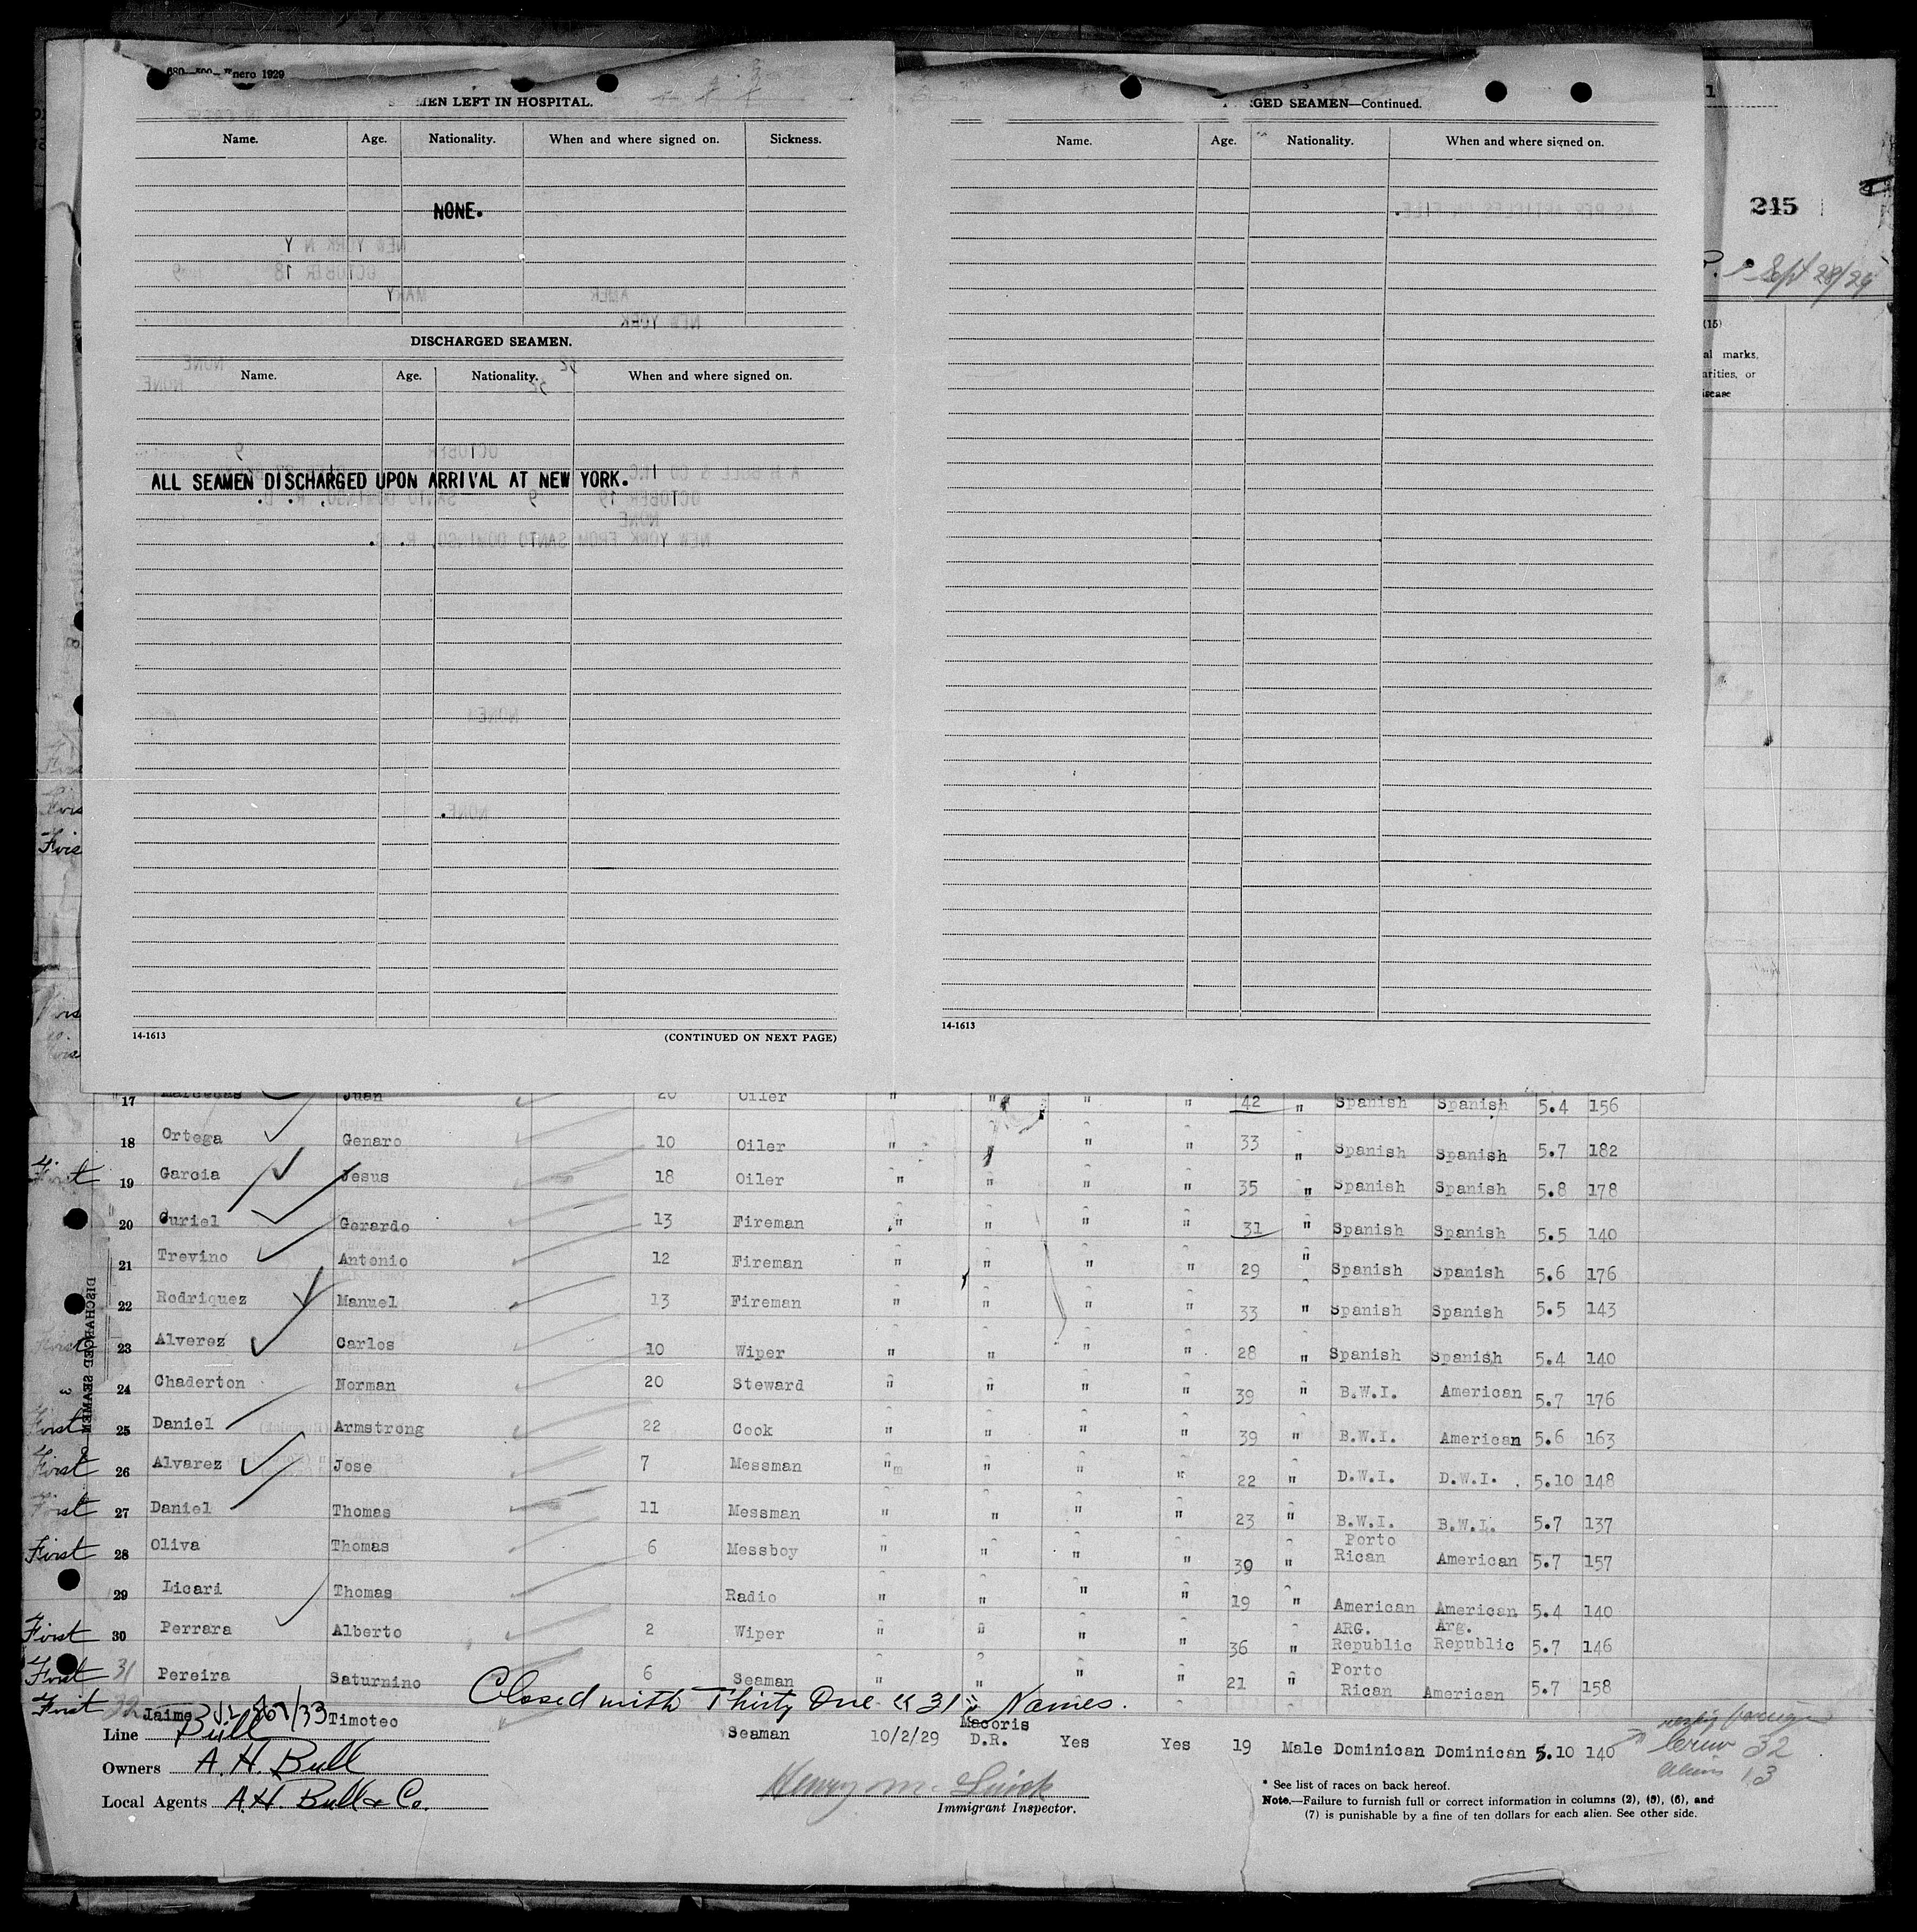 nero 1929
MEN LEFT IN HOSPITAL.
Name. Age. Nationality. When and where signed on. Sickness.
NONE.
DISCHARGED SEAMEN.
Name. Age. Nationality. When and where signed on.
ALL SEAMEN DISCHARGED UPON ARRIVAL AT NEW YORK.
14-1613 (CONTINUED ON NEXT PAGE)
GED SEAMEN—Continued.
Name. Age. Nationality. When and where signed on.
14-1613
1
245
Sept 28/29
(15)
al marks,
arities, or
isease
17 Marcenas Juan 20 Oiler " " " " 42 " Spanish Spanish 5.4 156
18 Ortega Genaro 10 Oiler " " " " 33 " Spanish Spanish 5.7 182
First 19 Garcia Jesus 18 Oiler " " " " 35 " Spanish Spanish 5.8 178
20 Curiel Gerardo 13 Fireman " " " " 31 " Spanish Spanish 5.5 140
21 Trevino Antonio 12 Fireman " " " " 29 " Spanish Spanish 5.6 176
22 Rodriquez Manuel 13 Fireman " " " " 33 " Spanish Spanish 5.5 143
First 23 Alverez Carlos 10 Wiper " " " " 28 " Spanish Spanish 5.4 140
24 Chaderton Norman 20 Steward " " " " 39 " B.W.I. American 5.7 176
First 25 Daniel Armstrong 22 Cook " " " " 39 " B.W.I. American 5.6 163
First 26 Alvarez Jose 7 Messman " " " " 22 " D.W.I. D.W.I. 5.10 148
First 27 Daniel Thomas 11 Messman " " " " 23 " B.W.I. B.W.I. 5.7 137
First 28 Oliva Thomas 6 Messboy " " " " 30 " Porto Rican American 5.7 157
29 Licari Thomas Radio " " " " 19 " American American 5.4 140
First 30 Perrara Alberto 2 Wiper " " " " 36 " ARG. Republic Arg. Republic 5.7 146
First 31 Pereira Saturnino 6 Seaman " " " " 21 " Porto Rican American 5.7 158
Closed with Thirty One "31" Names.
First 32 Jaime Timoteo Seaman 10/2/29 Macoris D.R. Yes Yes 19 Male Dominican Dominican 5.10 140
Line Bull
Owners A. H. Bull
Local Agents A.H. Bull & Co.
Immigrant Inspector.
Crew 32
Aliens 13
* See list of races on back hereof.
Note.—Failure to furnish full or correct information in columns (2), (5), (6), and
(7) is punishable by a fine of ten dollars for each alien. See other side.
DISCHARGED SEAMEN